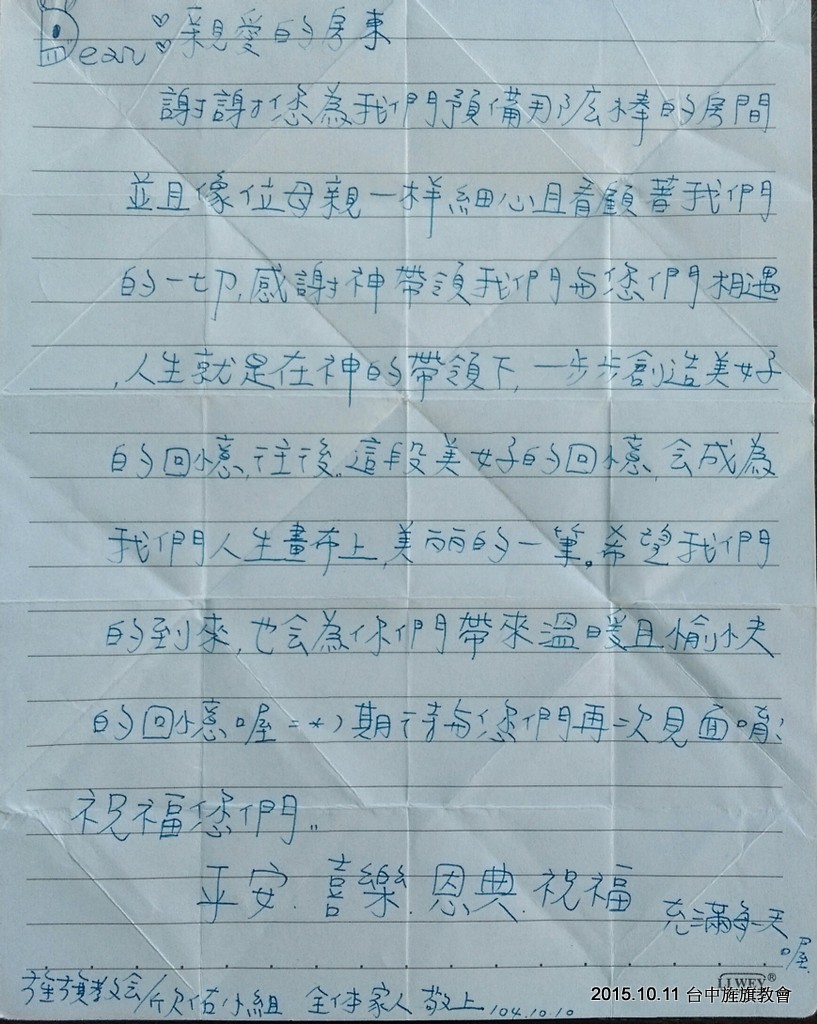 Dear 親愛的房東
謝謝您為我們預備那麼棒的房間
並且像位母親一样細心且看顧著我們
的一切,感謝神帶領我們与您們相遇
,人生就是在神的帶領下,一步步創造美好
的回憶,往後,這段美好的回憶,会成為
我們人生畫布上,美丽的一筆。希望我們
的到來,也会為你們帶來溫暖且愉快
的回憶喔=*)期待与您們再次見面唷!
祝福您們..
平安.喜樂.恩典.祝福
充滿每天
喔
旌旗教会/欣佑小組 全体家人 敬上,104.10.10
LIWEY®
2015.10.11 台中旌旗教會